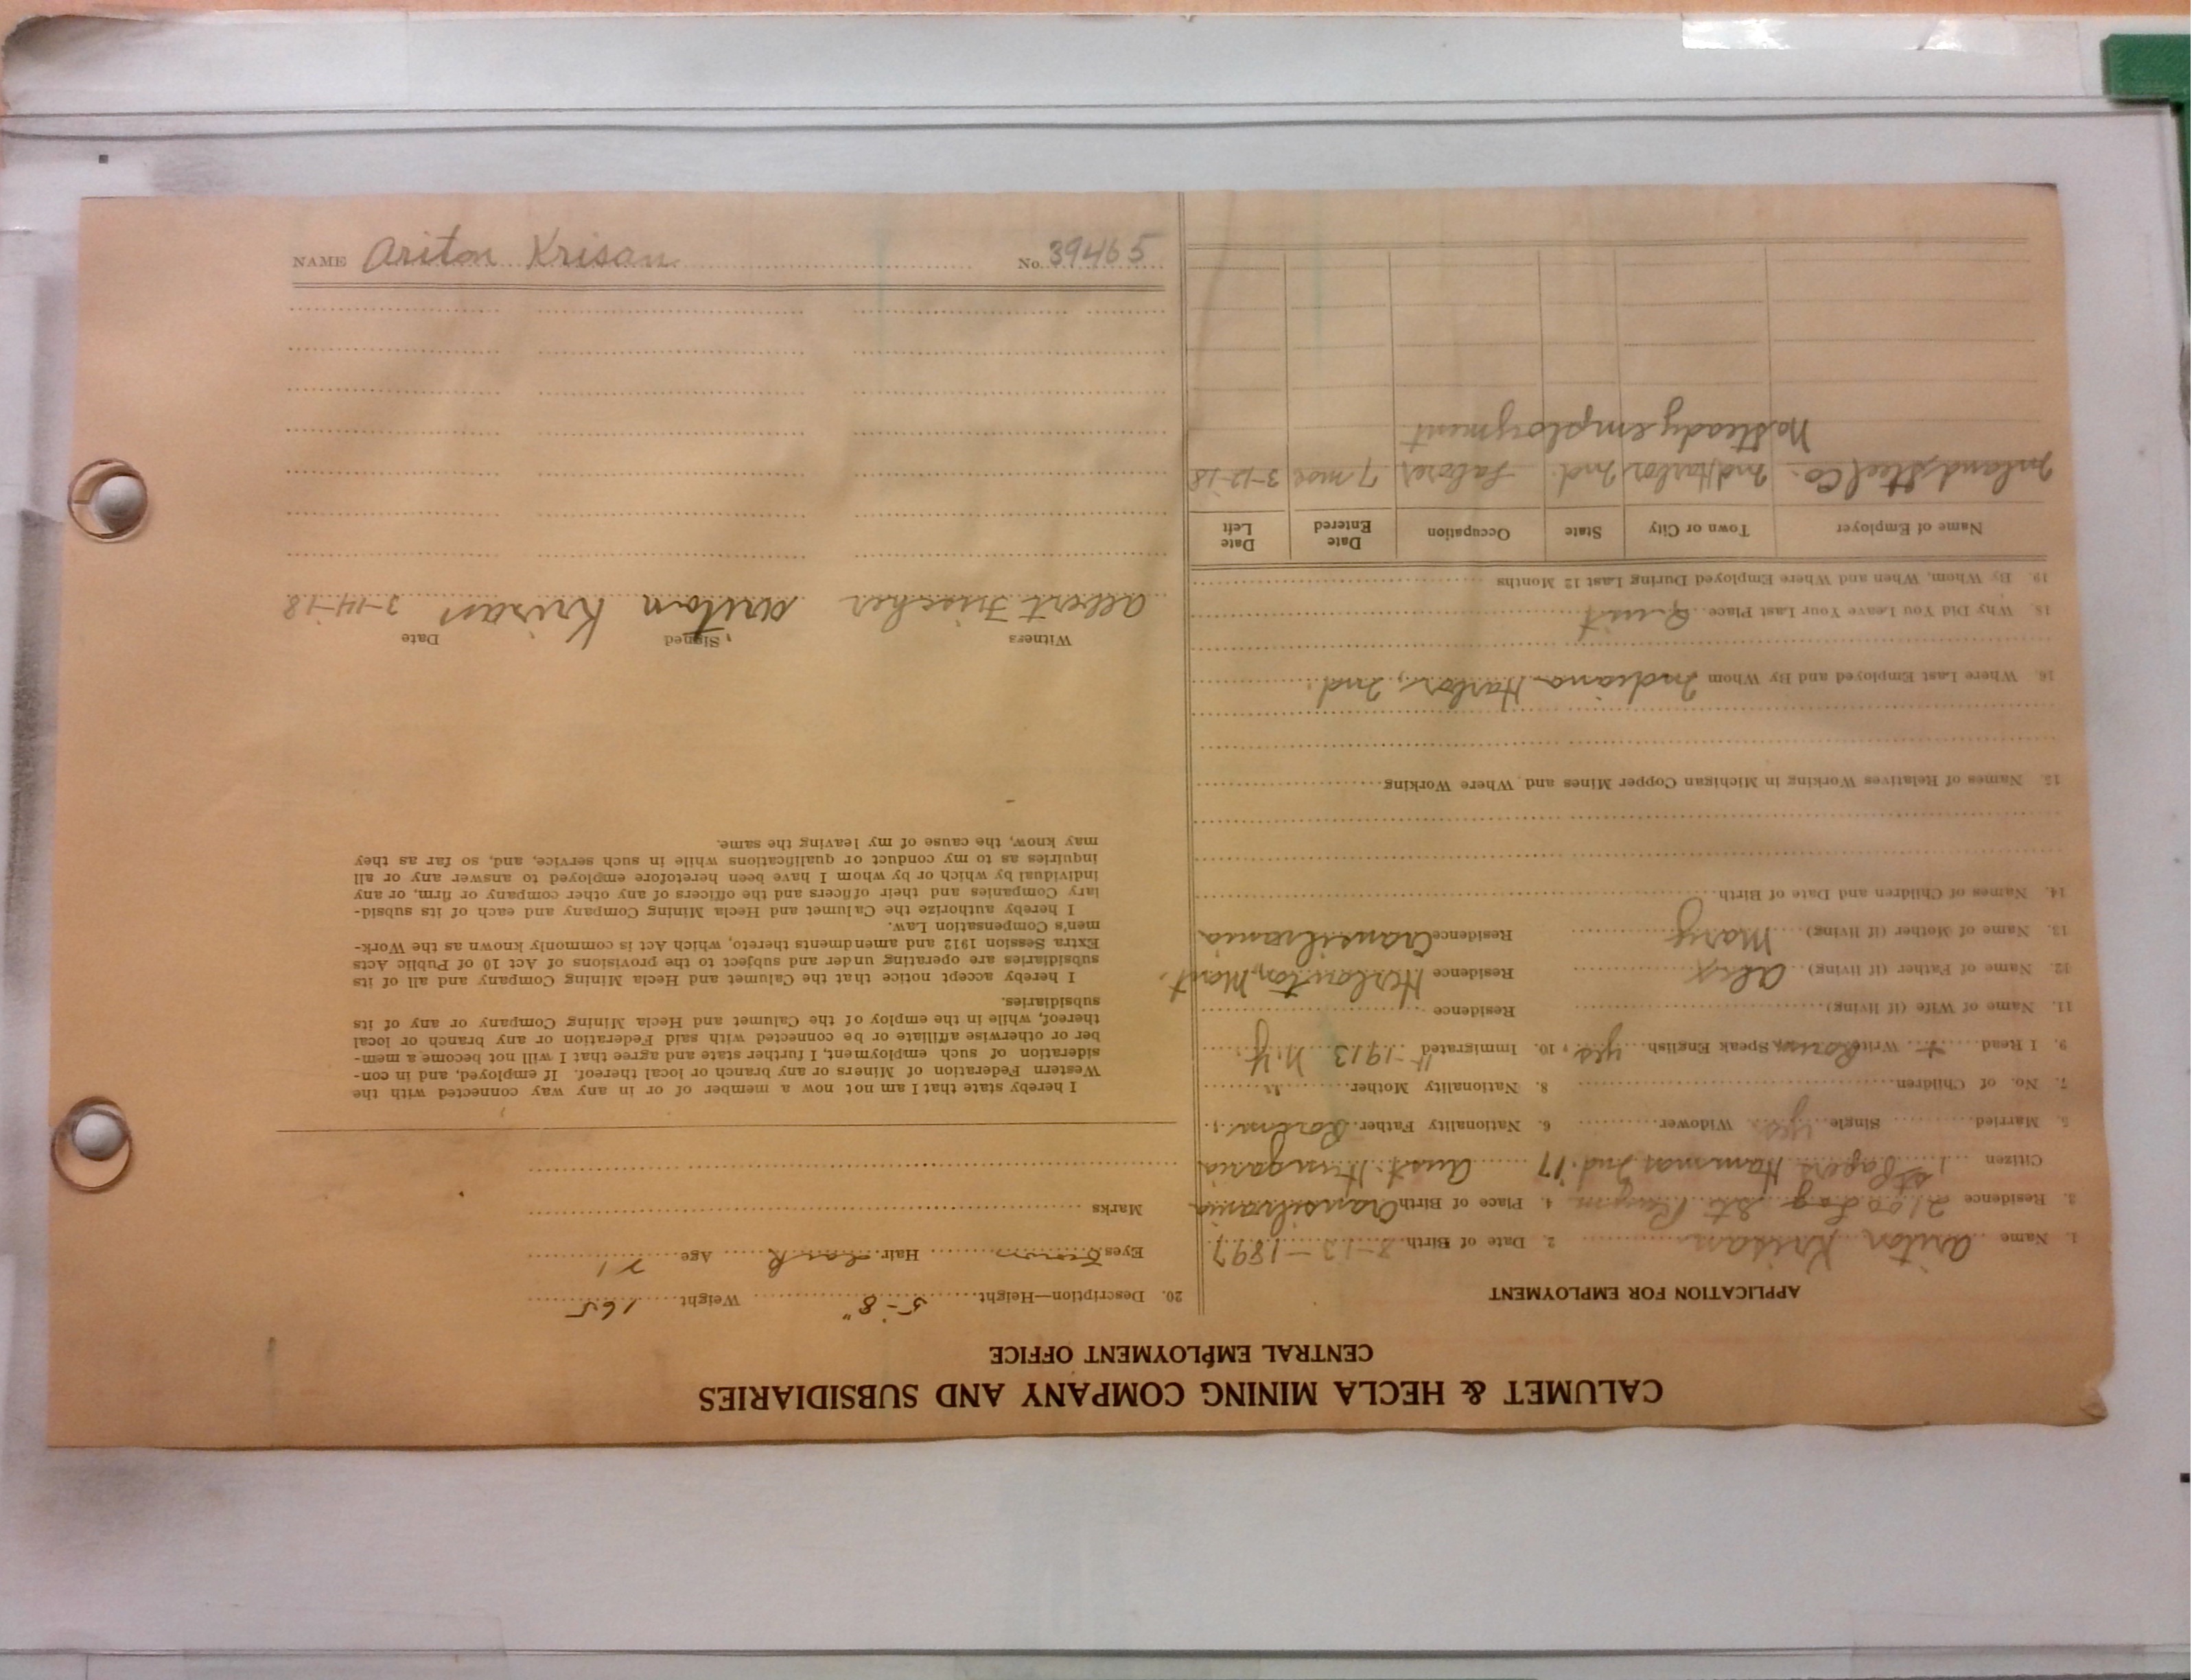 NAME Ariton Krisan No. 39465
CALUMET & HECLA MINING COMPANY AND SUBSIDIARIES
CENTRAL EMPLOYMENT OFFICE
APPLICATION FOR EMPLOYMENT
1. Name Ariton Krisan 2. Date of Birth 3-13-1897
3. Residence 2100 St. 4. Place of Birth Transilvania
Citizen 1st Papers Ind. '17 Aust. Hungaria
5. Married Single yes Widower 6. Nationality Father
7. No. of Children 8. Nationality Mother "
9. I Read + Write Speak English yes, 10. Immigrated 1913 N.Y.
11. Name of Wife (if living) Residence
12. Name of Father (if living) Alex Residence
13. Name of Mother (if living) Mary Residence Transilvania
14. Names of Children and Date of Birth
15. Names of Relatives Working in Michigan Copper Mines and Where Working
16. Where Last Employed and By Whom Indiana Harbor, Ind.
18. Why Did You Leave Your Last Place Quit
19. By Whom, When and Where Employed During Last 12 Months
Name of Employer Town or City State Occupation Date Entered Date Left
Inland Steel Co. Ind Harbor Ind. Laborer 7 mos 3-12-18
No steady employment
20. Description—Height 5-8" Weight 165
Eyes Brown Hair Dark Age 21
Marks
I hereby state that I am not now a member of or in any way connected with the
Western Federation of Miners or any branch or local thereof. If employed, and in con-
sideration of such employment, I further state and agree that I will not become a mem-
ber or otherwise affiliate or be connected with said Federation or any branch or local
thereof, while in the employ of the Calumet and Hecla Mining Company or any of its
subsidiaries.
I hereby accept notice that the Calumet and Hecla Mining Company and all of its
subsidiaries are operating under and subject to the provisions of Act 10 of Public Acts
Extra Session 1912 and amendments thereto, which Act is commonly known as the Work-
men's Compensation Law.
I hereby authorize the Calumet and Hecla Mining Company and each of its subsid-
iary Companies and their officers and the officers of any other company or firm, or any
individual by which or by whom I have been heretofore employed to answer any or all
inquiries as to my conduct or qualifications while in such service, and, so far as they
may know, the cause of my leaving the same.
Witness Signed Date
Albert Fischer Ariton Krisan 3-14-18